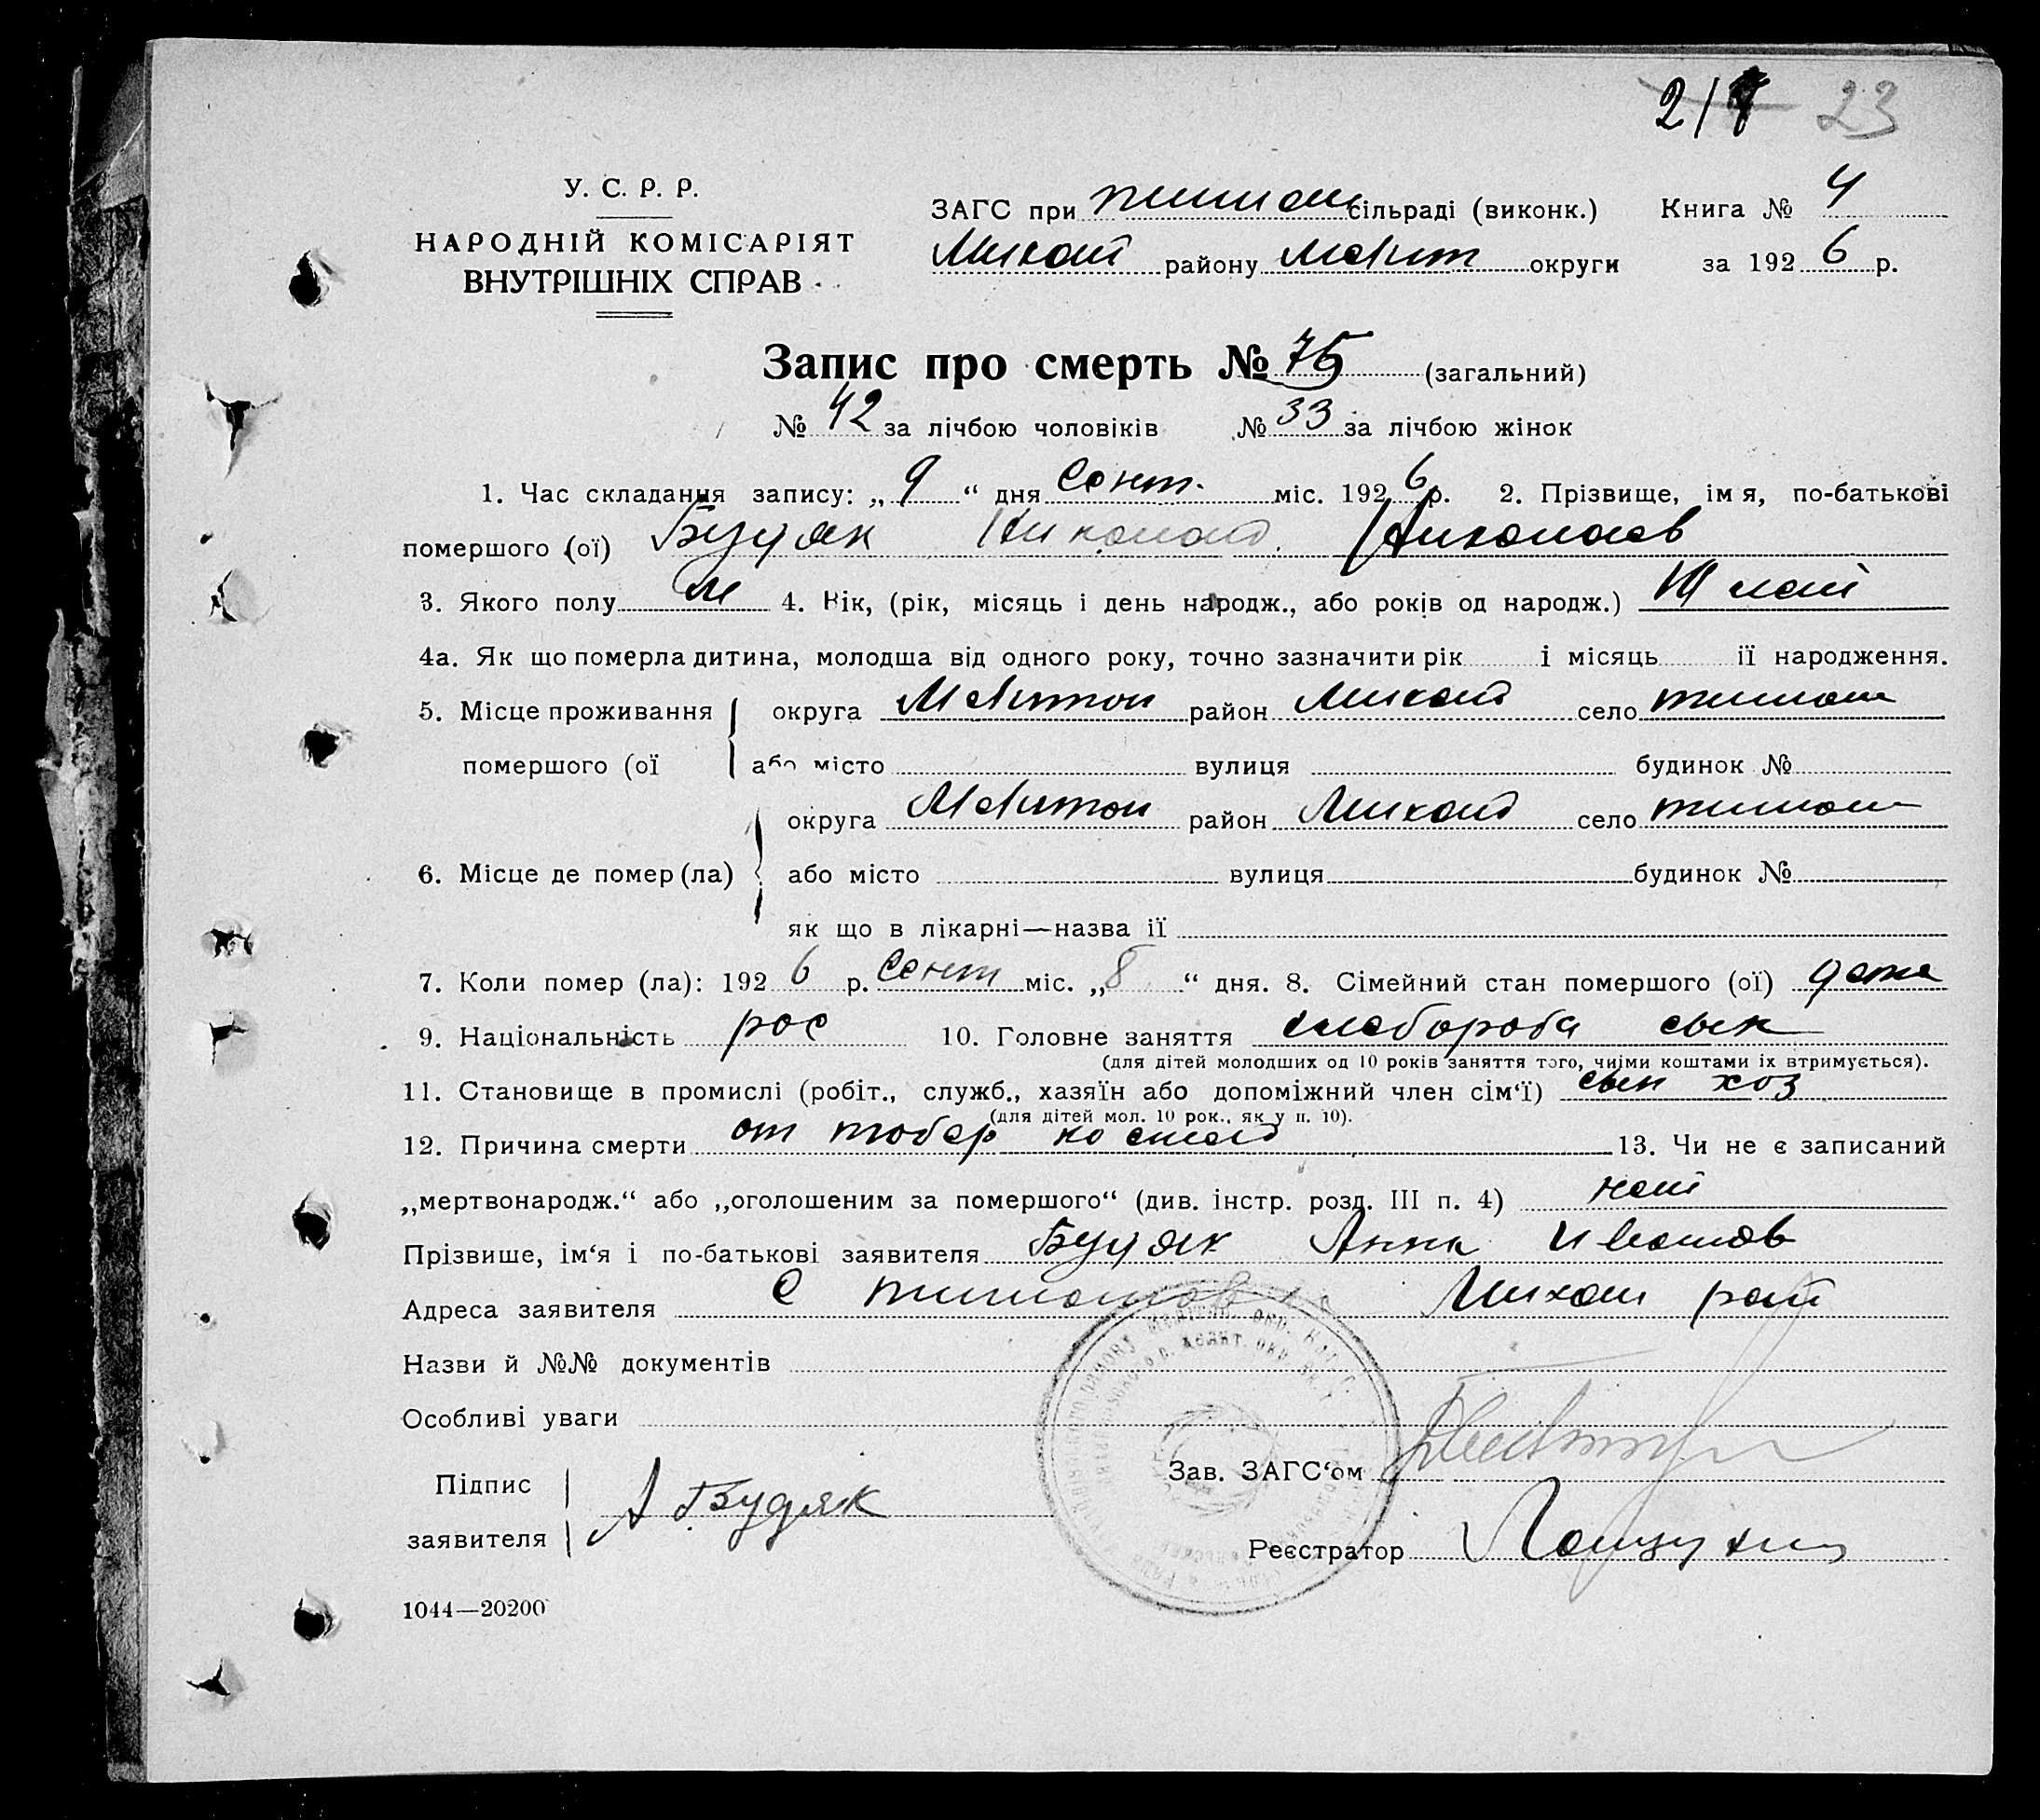 23
У. С. Р. Р.
НАРОДНІЙ КОМІСАРІЯТ
ВНУТРІШНІХ СПРАВ
ЗАГС при тимош сільраді (виконк.) Книга № 4
Михай району Меліт округи за 1926 р.
Запис про смерть № 75 (загальний)
№ 42 за лічбою чоловіків № 33 за лічбою жінок
1. Час складання запису: „9“ дня Сент. міс. 1926 р. 2. Прізвище, імя, по-батькові
помершого (ої) Будяк Николай Николаев
3. Якого полу м 4. Вік, (рік, місяць і день народж., або років од народж.)
4а. Як що померла дитина, молодша від одного року, точно зазначити рік і місяць її народження.
5. Місце проживання округа Мелитоп район Михай село тимош
помершого (ої або місто вулиця будинок №
округа Мелитоп район Михай село тимош
6. Місце де помер (ла) або місто вулиця будинок №
як що в лікарні—назва її
7. Коли помер (ла): 1926 р. Сент міс. „8“ дня. 8. Сімейний стан помершого (ої) дитя
9. Національність рос 10. Головне заняття хлебороба сын
(для дітей молодших од 10 років заняття того, чиїми коштами їх втримується).
11. Становище в промислі (робіт., служб., хазяїн або допоміжний член сім‘ї) сын хоз
(для дітей мол. 10 рок., як у п. 10).
12. Причина смерти от тубер костей 13. Чи не є записаний
„мертвонародж.“ або „оголошеним за помершого“ (див. інстр. розд. III п. 4) нет
Прізвише, ім‘я і по-батькові заявителя Будяк Анна Иванов
Адреса заявителя С тимошов Михай рай
Назви й №№ документів
Особливі уваги
Зав. ЗАГС‘ом
Підпис
заявителя А Будяк
Реєстратор
1044—20200